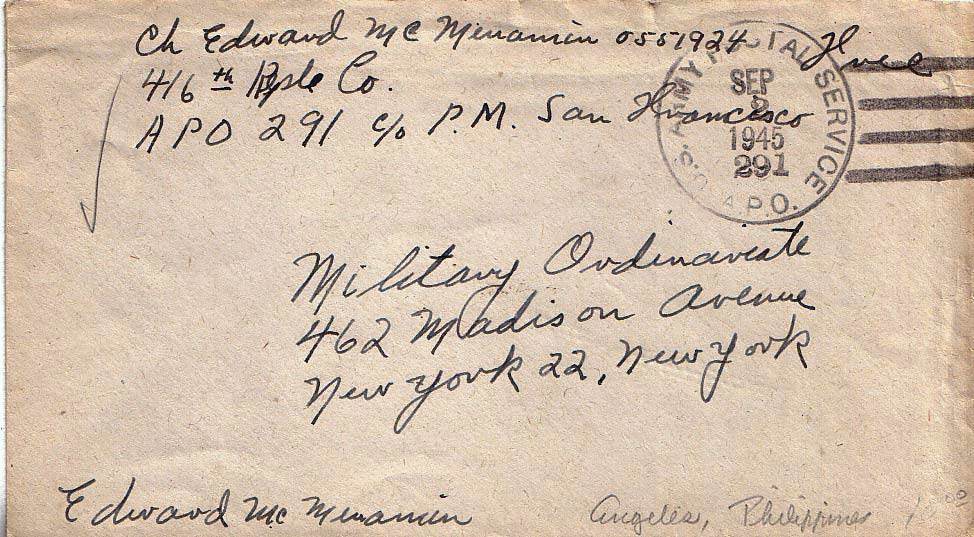 Ch Edward McMenamin 0551924 Free
416th Reple Co.
APO 291 c/o P.M. San Francisco
U.S. ARMY POSTAL SERVICE
SEP
1945
291
A.P.O.
Military Ordinariate
462 Madison Avenue
New York 22, New York
Edward McMenamin
Angeles, Philippines